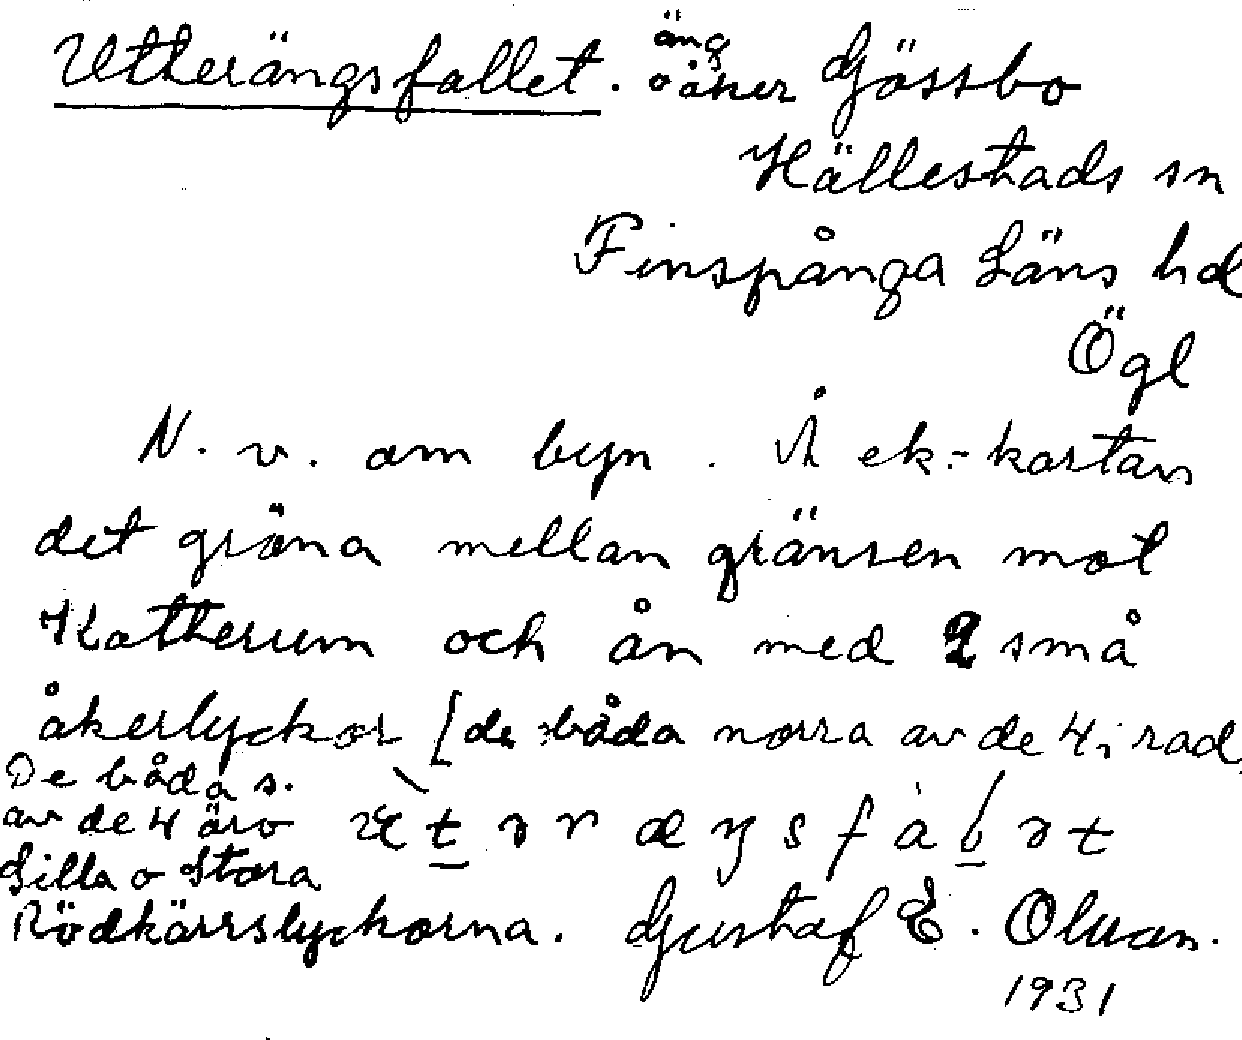 Utterängsfallet. äng o åker Gössbo
Hällestads sn
Finspånga Läns hd
Ögl
N. v. om byn. Å ek.-kartan
det gröna mellan gränsen mot
Katterum och ån med 2 små
åkerlyckor [de båda norra av de 4 i rad.
De båda s.
av de 4 äro
Lilla o Stora
Rödkärrslyckorna. Gustaf E. Olsson.
1931